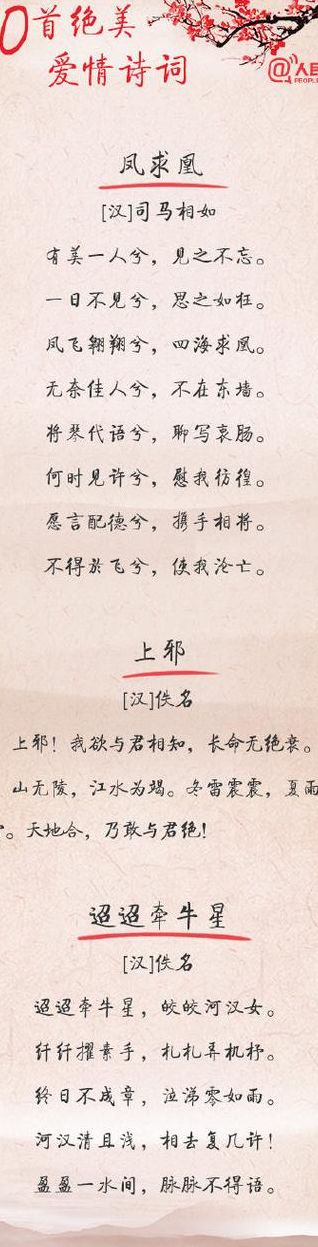 0首绝美
爱情诗词
@人民
PEOPLE
凤求凰
[汉]司马相如
有美一人兮，见之不忘。
一日不见兮，思之如狂。
凤飞翱翔兮，四海求凰。
无奈佳人兮，不在东墙。
将琴代语兮，聊写衷肠。
何时见许兮，慰我彷徨。
愿言配德兮，携手相将。
不得於飞兮，使我沦亡。
上邪
[汉]佚名
上邪！我欲与君相知，长命无绝衰。
山无陵，江水为竭。冬雷震震，夏雨
。天地合，乃敢与君绝！
迢迢牵牛星
[汉]佚名
迢迢牵牛星，皎皎河汉女。
纤纤擢素手，札札弄机杼。
终日不成章，泣涕零如雨。
河汉清且浅，相去复几许！
盈盈一水间，脉脉不得语。